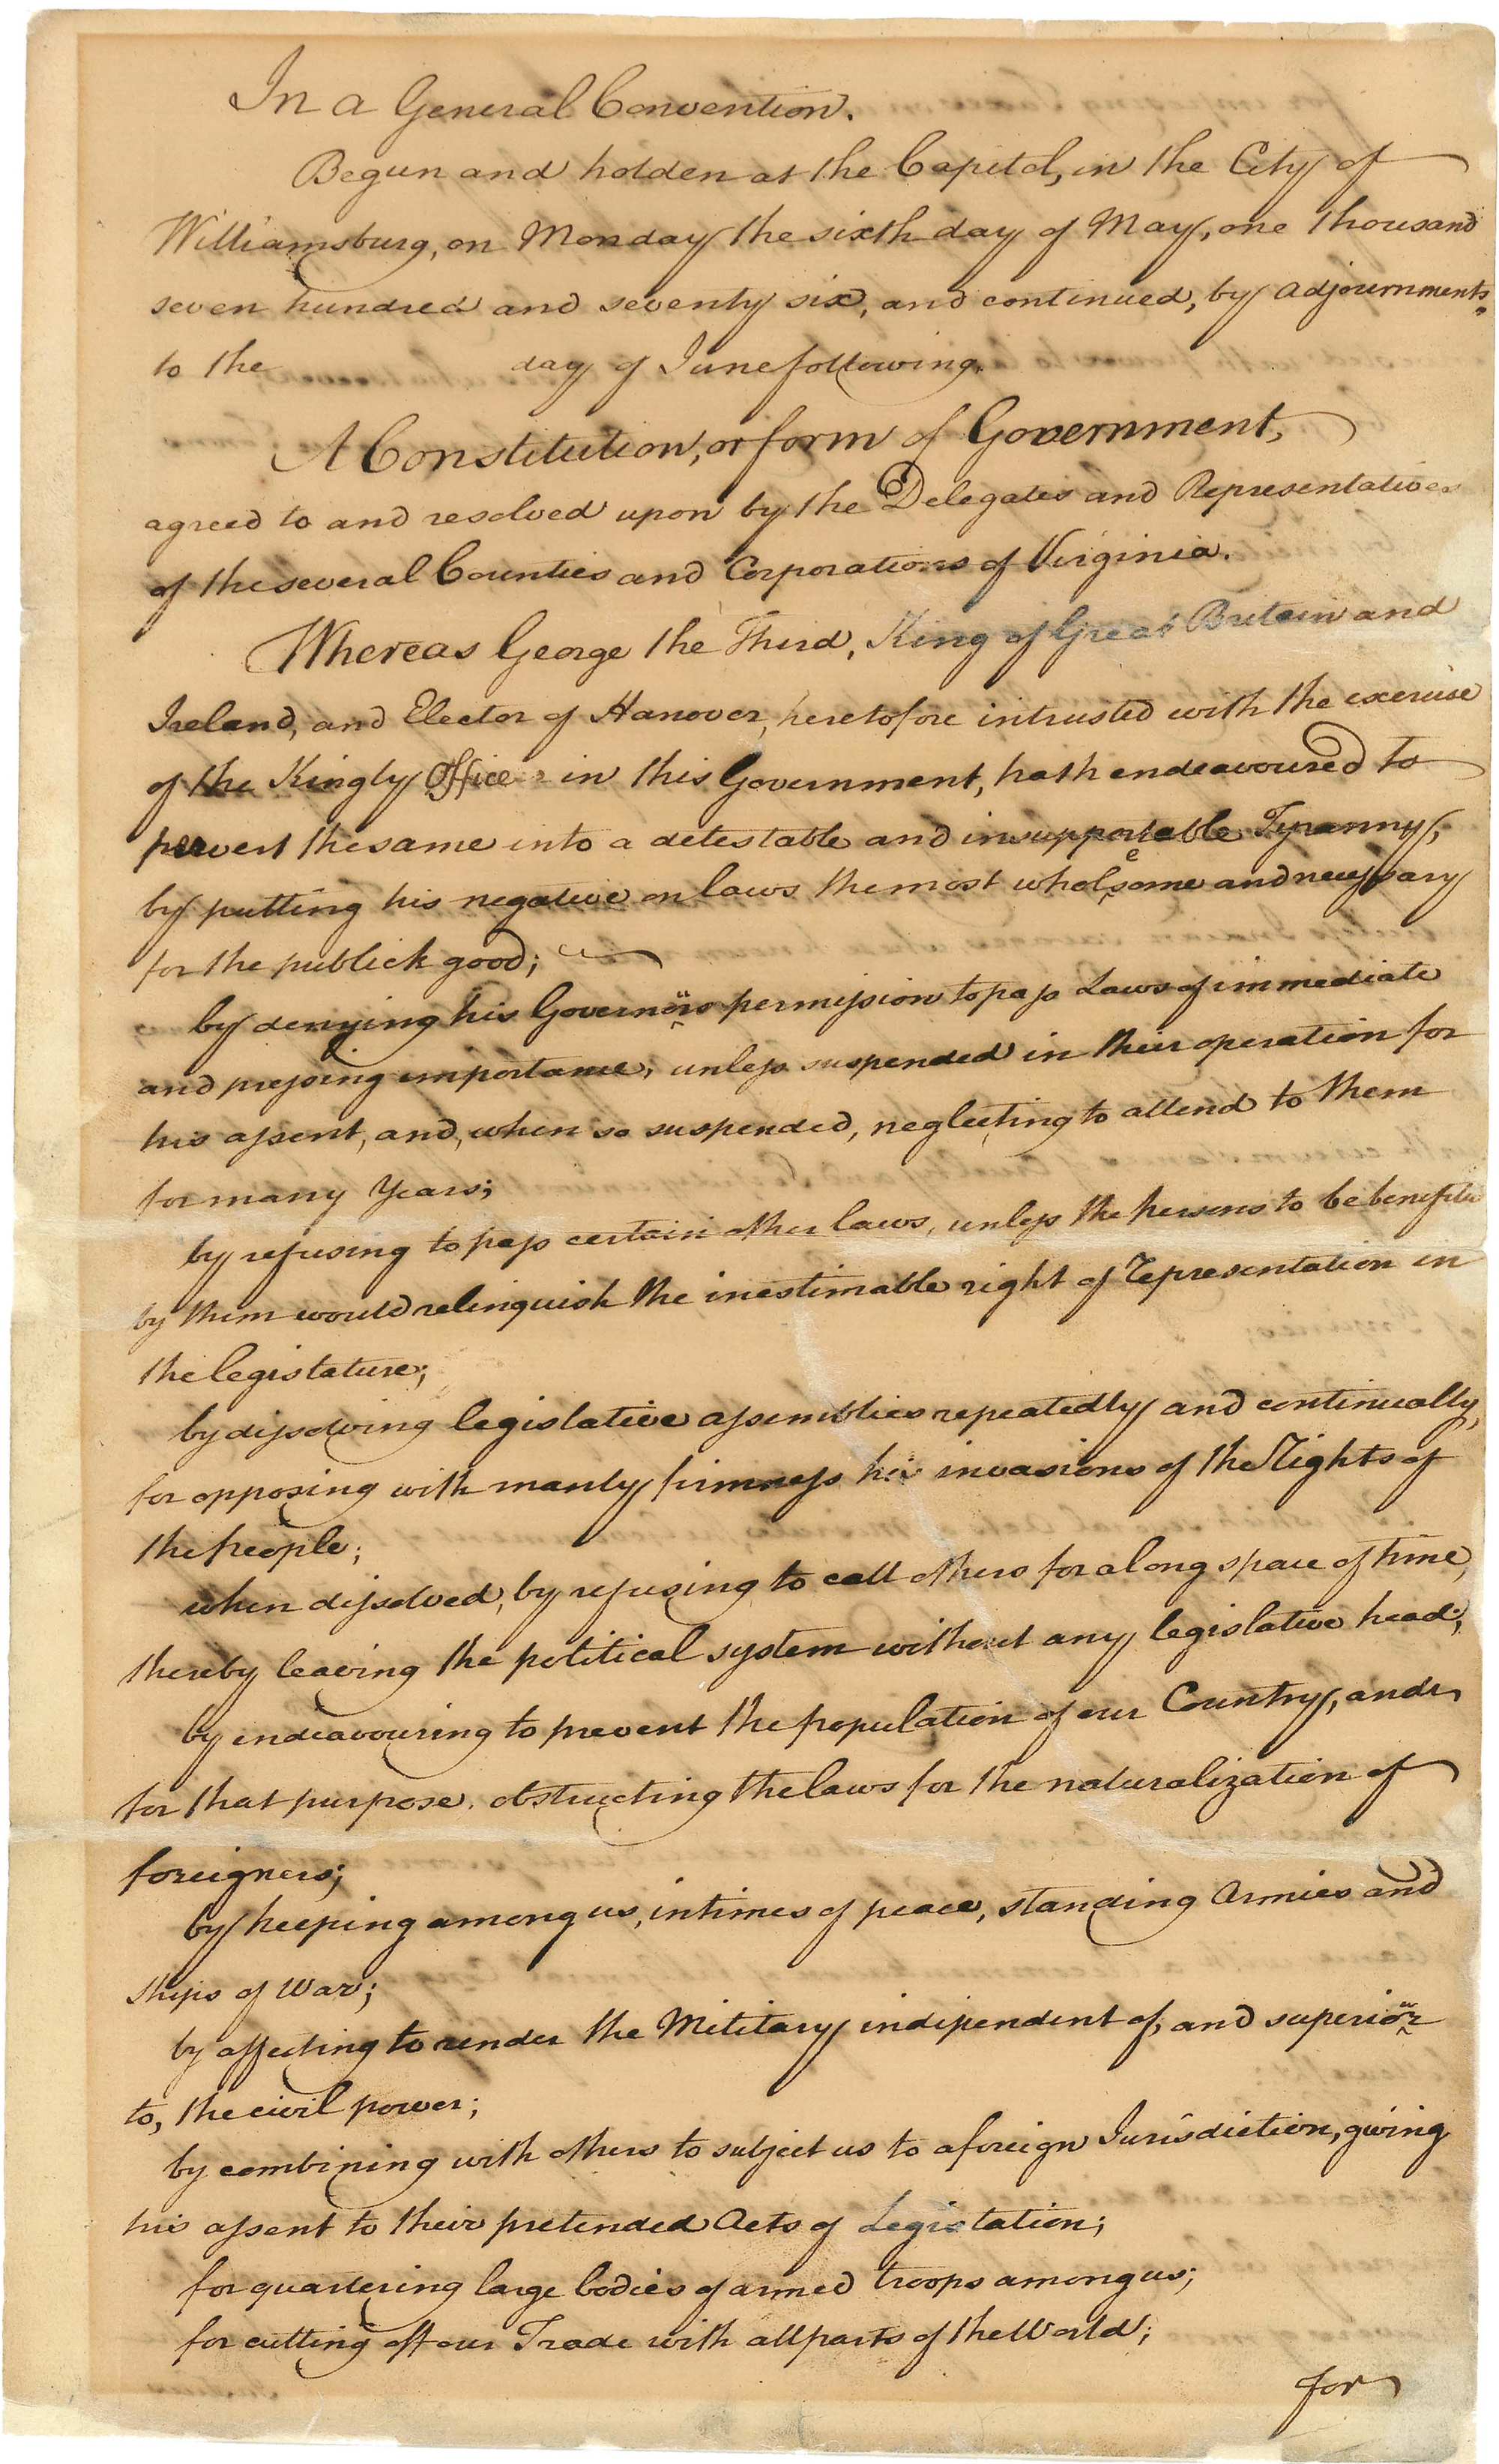 In a General Convention.
Begun and holden at the Capitol, in the City of
Williamsburg, on Monday the sixth day of May, one thousand
seven hundred and seventy six, and continued, by adjournments,
to the day of June following.
A Constitution, or form of Government,
agreed to and resolved upon by the Delegates and Representatives
of the several Counties and Corporations of Virginia.
Whereas George the Third, King of Great Britain and
Ireland, and Elector of Hanover, heretofore intrusted with the exercise
of the Kingly Office in this Government, hath endeavoured to
pervert the same into a detestable and insupportable Tyranny,
by putting his negative on laws the most wholesome and necessary
for the publick good;
by denying his Governours permission to pass Laws of immediate
and pressing importance, unless suspended in their operation for
his assent, and, when so suspended, neglecting to attend to them
for many Years;
by refusing to pass certain other laws, unless the persons to be benefited
by them would relinquish the inestimable right of representation in
the legislature;
by dissolving legislative assemblies repeatedly and continually,
for opposing with manly firmness his invasions of the Rights of
the people;
when dissolved, by refusing to call others for a long space of time,
thereby leaving the political system without any legislative head;
by endeavouring to prevent the population of our Country, and,
for that purpose, obstructing the laws for the naturalization of
foreigners;
by keeping among us, in times of peace, standing Armies and
Ships of War;
by affecting to render the Military independent of, and superiour
to, the civil power;
by combining with others to subject us to a foreign Jurisdiction, giving
his assent to their pretended Acts of Legislation;
for quartering large bodies of armed troops among us;
for cutting off our Trade with all parts of the World;
for